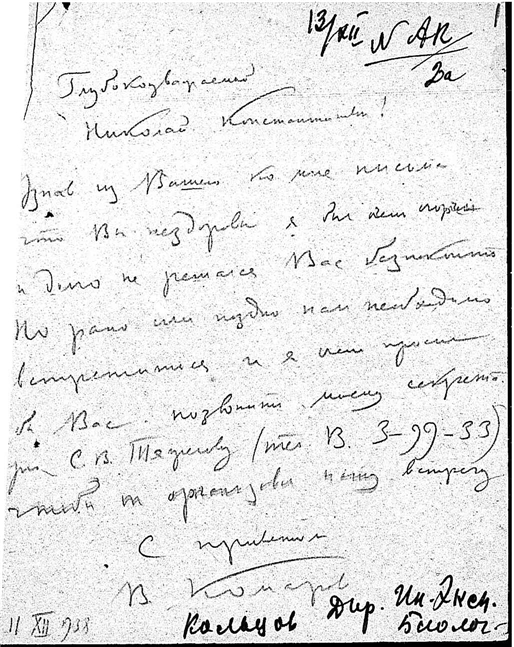 13/XII N АК
3а
Глубокоуважаемый
Николай Константинович!
Узнав из Вашего ко мне письма
что Вы нездоровы я был очень
и долго не решался Вас безпокоить
Но рано или поздно нам необходимо
встретиться и я очень просил
бы Вас позвонить моему секрета-
рю С. В. (тел. В. 3-99-33)
чтобы он организовал нашу встречу
С приветом
В Комаров
11 XII 938
Кольцов Дир. Ин. Эксп.
Биолог-